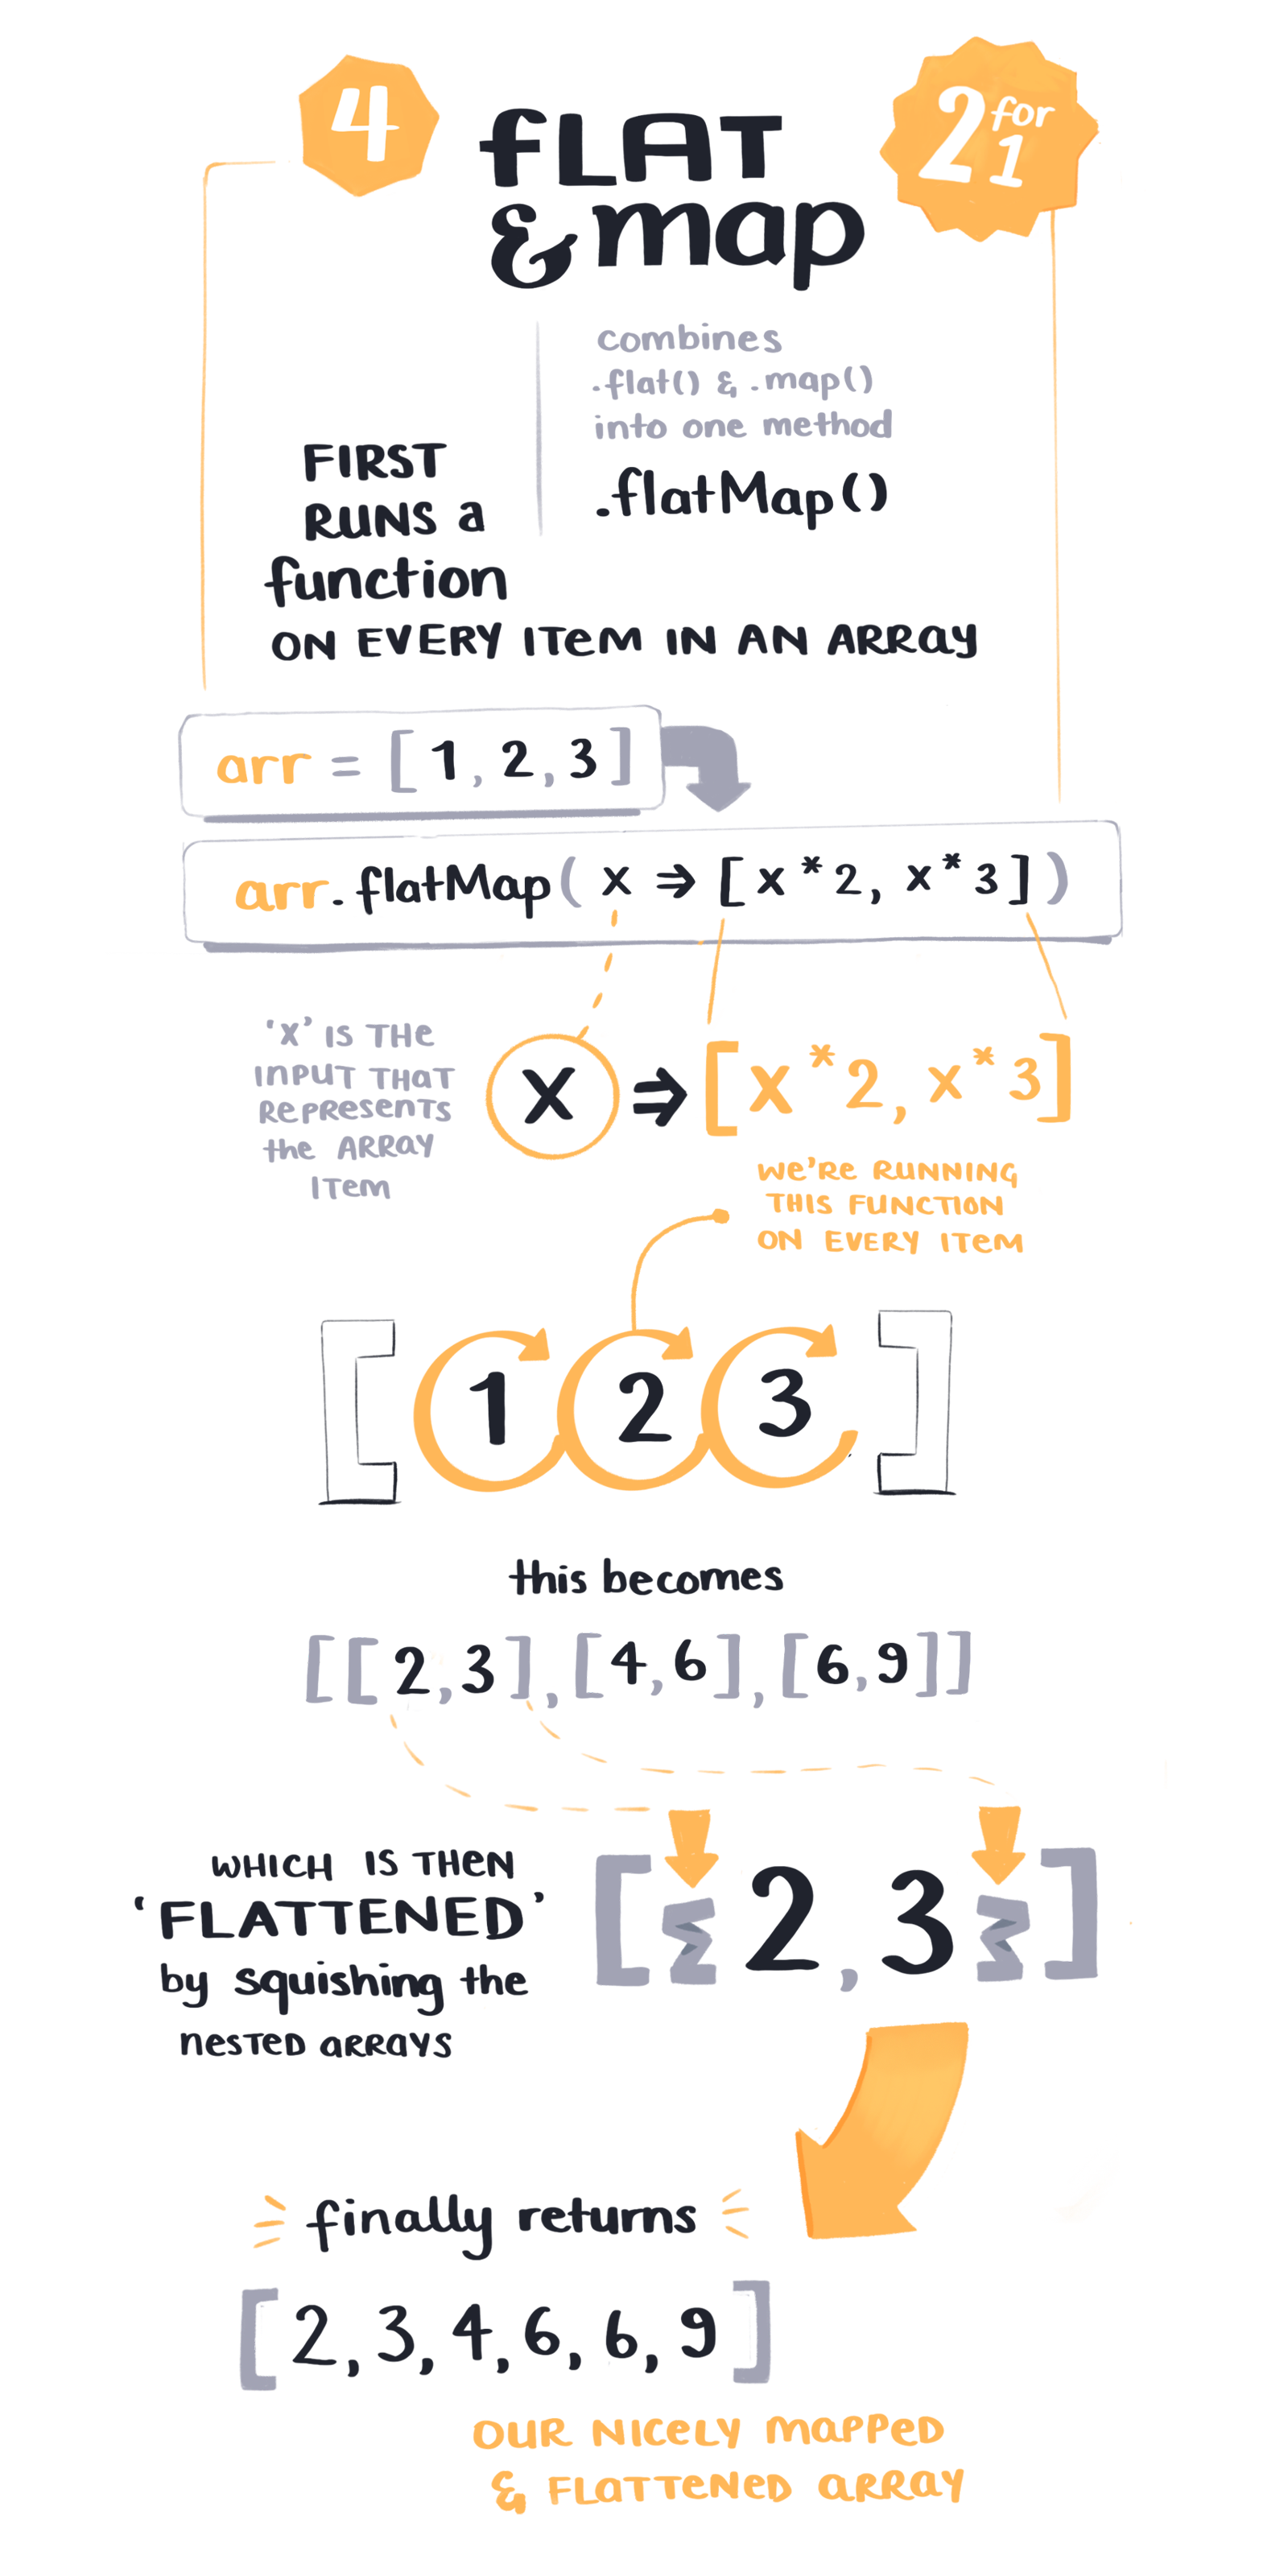 4
fLAT
& map
2 for 1
combines
.flat() & .map()
into one method
.flatMap()
FIRST
RUNS a
function
ON EVERY ITem IN AN ARRay
arr = [ 1, 2, 3 ]
arr.flatMap( x ⇒ [ x * 2, x * 3 ] )
'X' IS THe
INPUT THAT
RePReSenTS
the ARRAY
ITem
X ⇒ [ x * 2, x * 3 ]
We'Re RUNNING
THIS FUNCTION
ON EVERY ITem
[ 1 2 3 ]
this becomes
[ [ 2, 3 ], [ 4, 6 ], [ 6, 9 ] ]
WHICH IS THeN
'FLATTENED'
by squishing the
nesTeD aRRays
[ [ 2, 3 ] ]
finally returns
[ 2, 3, 4, 6, 6, 9 ]
OUR NICeLY maPPeD
& FLaTTeNeD aRRay